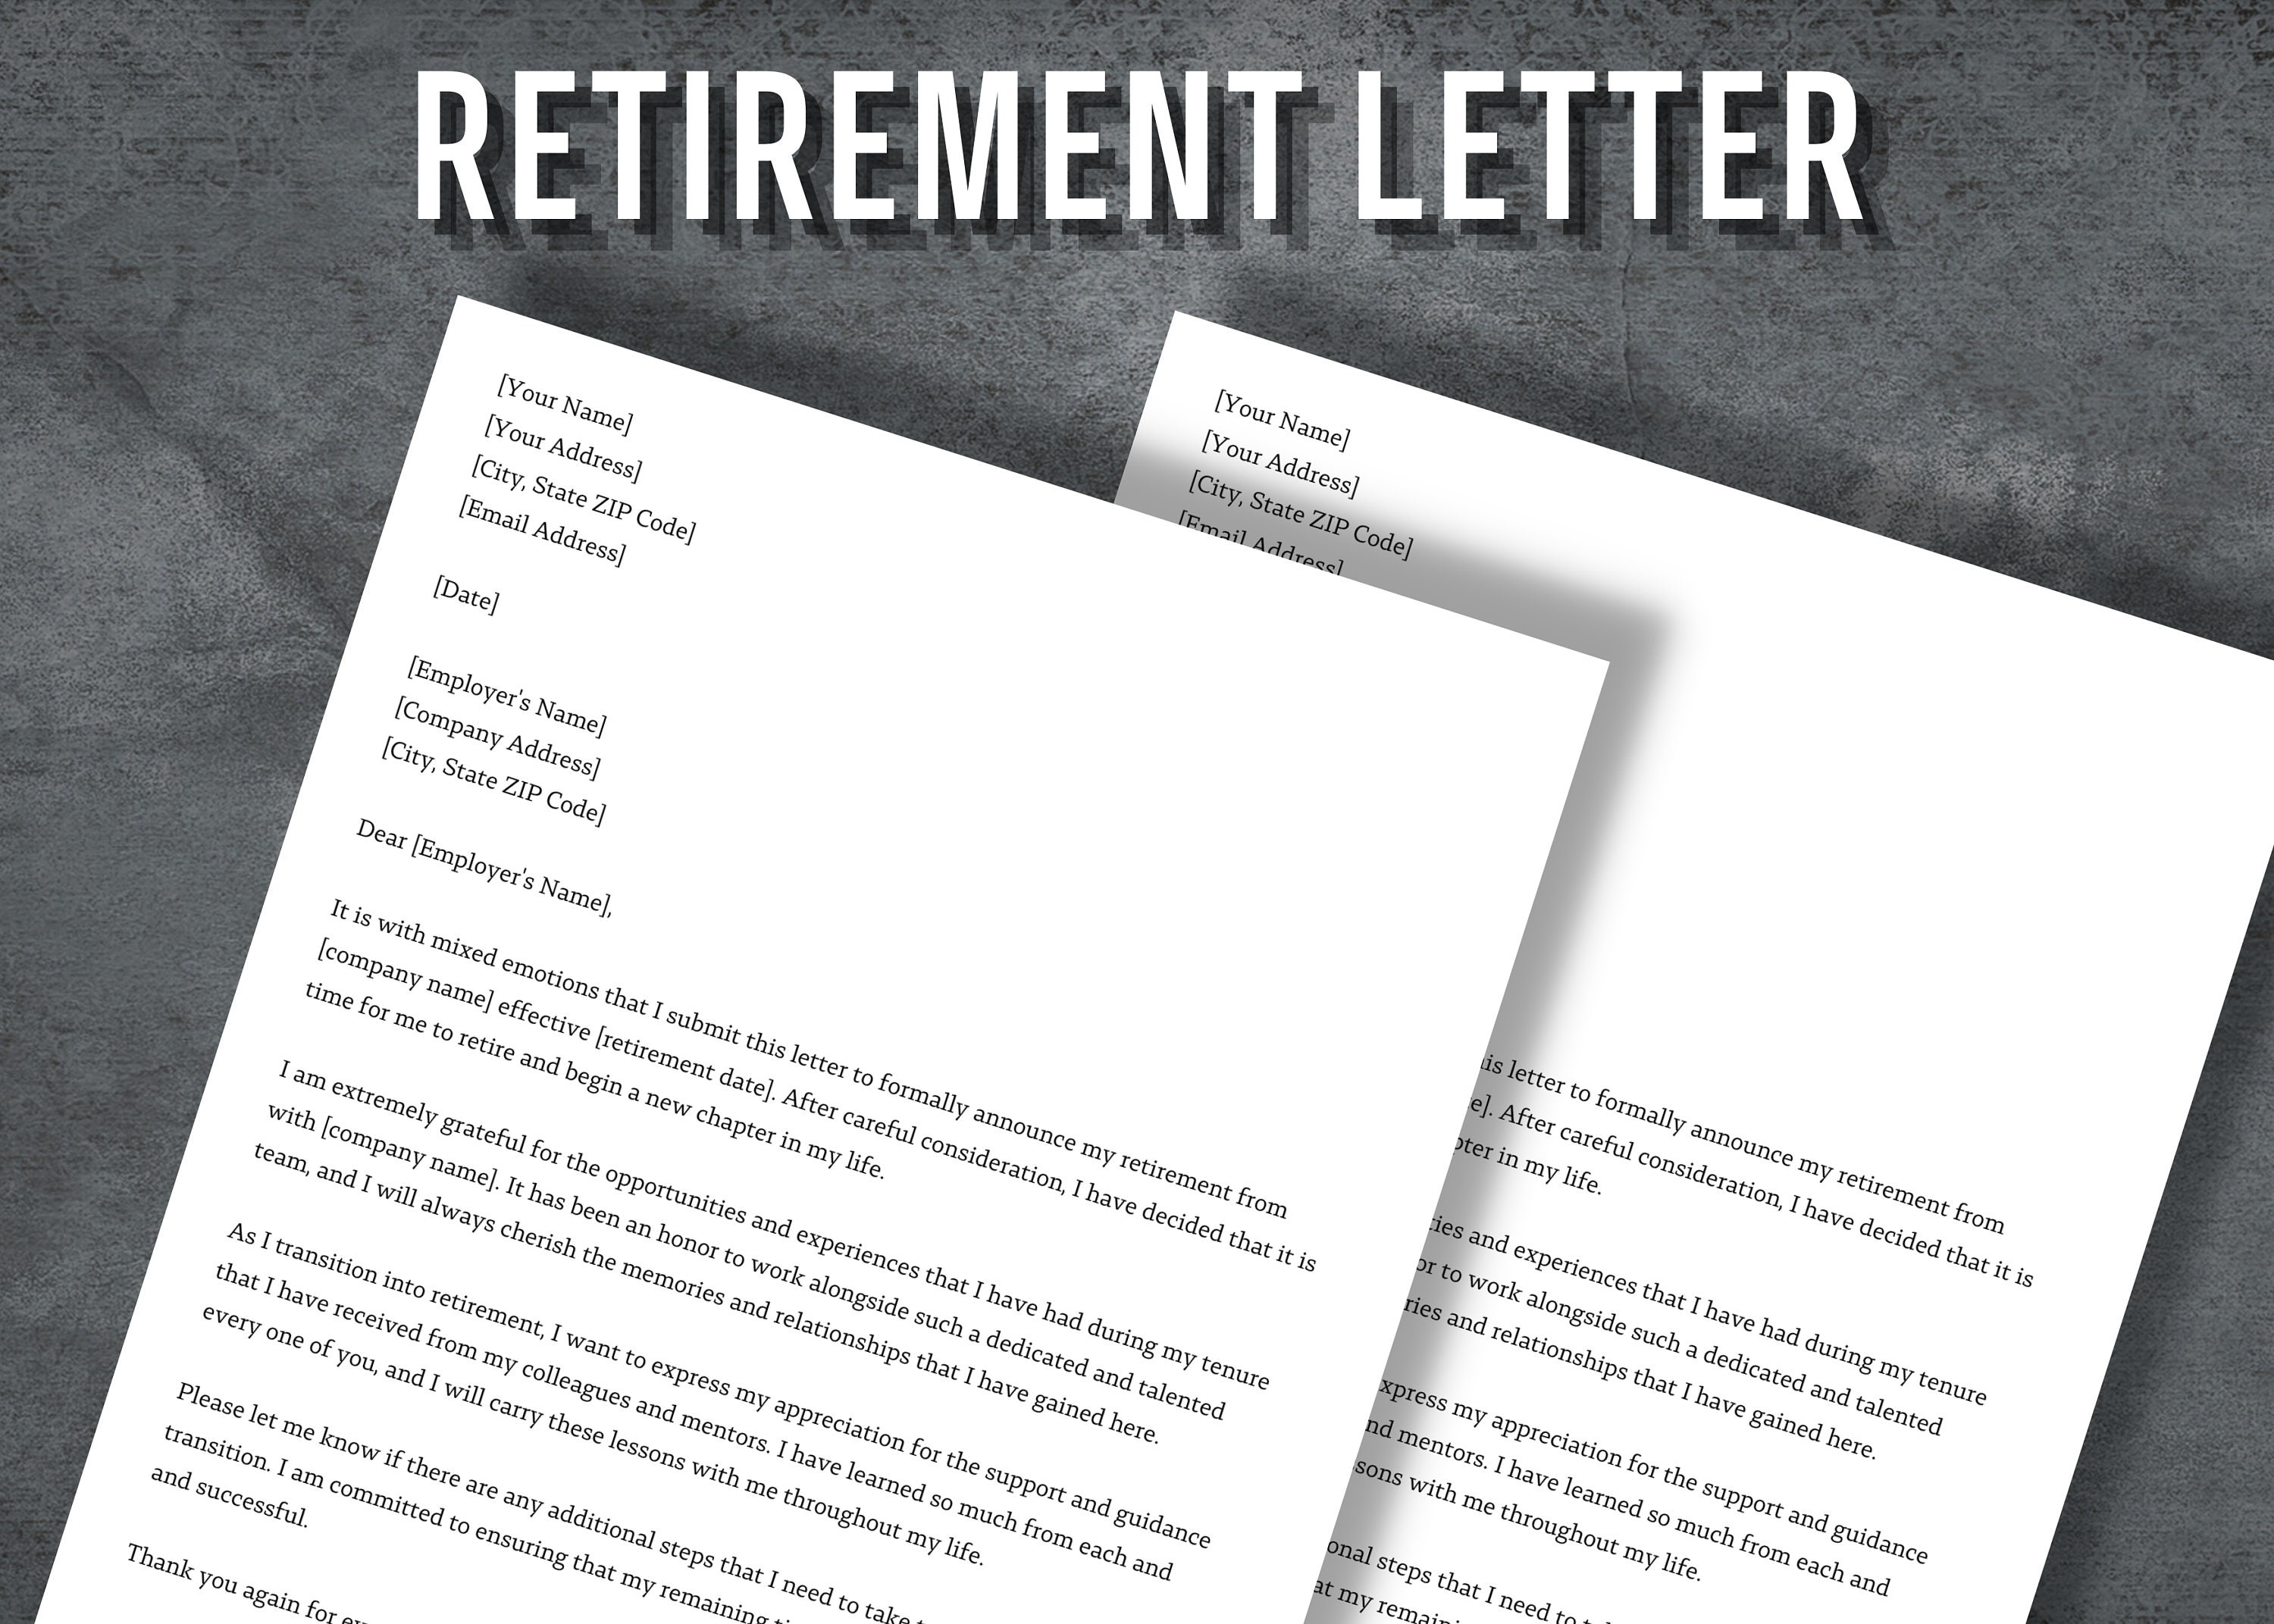 RETIREMENT LETTER
[Your Name]
[Your Address]
[City, State ZIP Code]
[Email Address]
[Date]
[Employer's Name]
[Company Address]
[City, State ZIP Code]
Dear [Employer's Name],
It is with mixed emotions that I submit this letter to formally announce my retirement from
[company name] effective [retirement date]. After careful consideration, I have decided that it is
time for me to retire and begin a new chapter in my life.
I am extremely grateful for the opportunities and experiences that I have had during my tenure
with [company name]. It has been an honor to work alongside such a dedicated and talented
team, and I will always cherish the memories and relationships that I have gained here.
As I transition into retirement, I want to express my appreciation for the support and guidance
that I have received from my colleagues and mentors. I have learned so much from each and
every one of you, and I will carry these lessons with me throughout my life.
Please let me know if there are any additional steps that I need to take
transition. I am committed to ensuring that my remaining
and successful.
Thank you again for
[Your Name]
[Your Address]
[City, State ZIP Code]
[Email Address]
letter to formally announce my retirement from
After careful consideration, I have decided that it is
in my life.
and experiences that I have had during my tenure
to work alongside such a dedicated and talented
and relationships that I have gained here.
my appreciation for the support and guidance
mentors. I have learned so much from each and
with me throughout my life.
steps that I need to
my